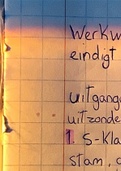 Werkw
eindigt
uitgang
uitzonde
1. S-Kla
stam,